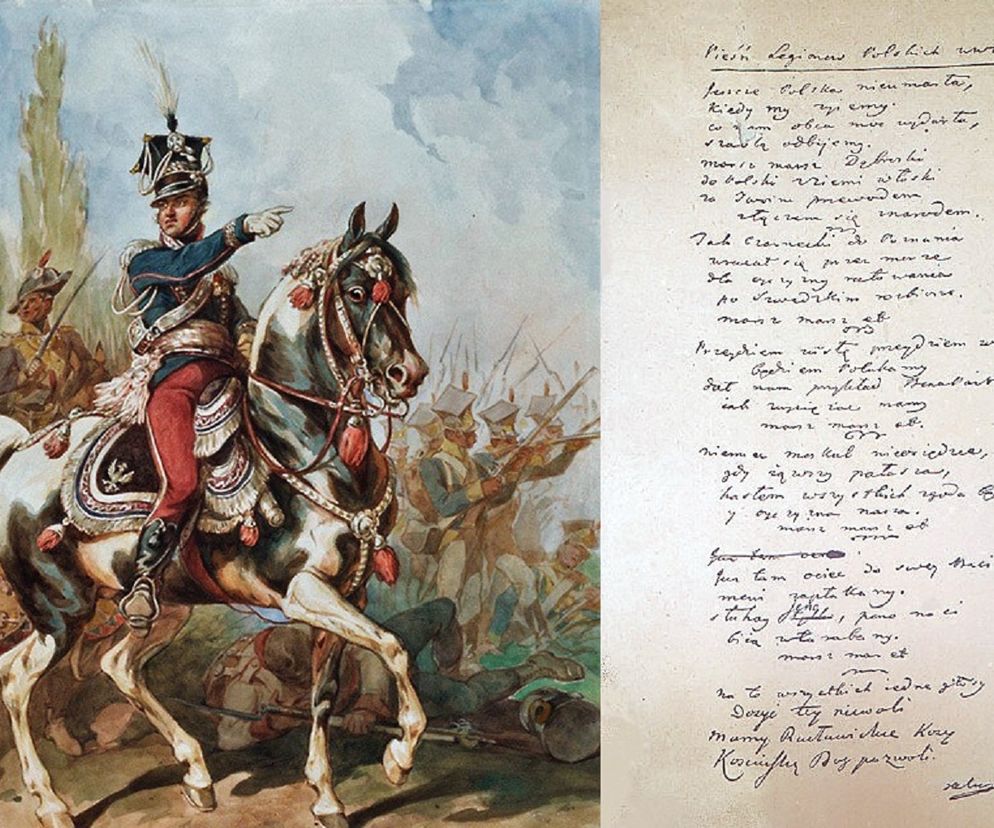 Pieśń Legionow Polskich
Jeszcze Polska nieumarła,
kiedy my żyiemy.
co nam obca moc wydarła,
szablą odbijemy.
marsz marsz Dąbrski
do Polski z ziemi włoski
za Twoim przewodem
złączem się znarodem.
Jak Czarnecki do Poznania
wracał się przez morze
dla oyczyzny ratowania
po Szwedzkim rozbiorze.
marsz marsz et
Przeydziem wisłę przeydziem
będziem Polakamy
dał nam przykład Bonapart
iak zwyciężac mamy
marsz marsz et.
niemiec moskal nieosiędzie,
gdy iąwszy pałasza,
hasłem wszystkich zgoda
y oyczyzna nasza.
marsz marsz et
Juz tam
Juz tam ociec do swey Basi
mówi zapłakany.
słuchay, pono nasi
biią w tarabany.
marsz mar et
na to wszystkich iedne głosy
Dosyć tey niewoli
mamy Racławickie Kosy
Kosciuszkę Bog pozwoli.